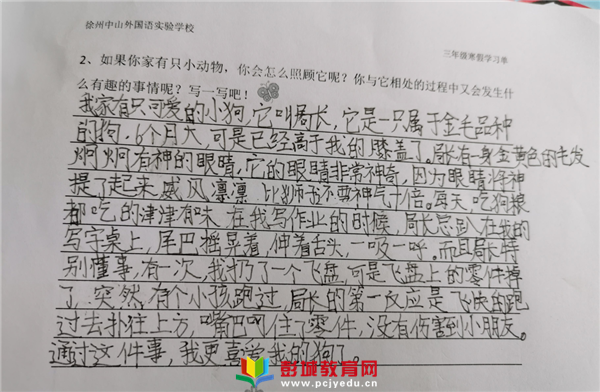 徐州中山外国语实验学校
三年级寒假学习单
2、如果你家有只小动物，你会怎么照顾它呢？你与它相处的过程中又会发生什
么有趣的事情呢？写一写吧！
我家有只可爱的小狗，它叫局长，它是一只属于金毛品种
的狗。6个月大，可是已经高于我的膝盖了。局长有一身金黄色的毛发
炯炯有神的眼睛，它的眼睛非常神奇，因为眼睛将神
提了起来 威风凛凛 比狮子还要神气十倍。每天吃狗粮
都吃的津津有味 在我写作业的时候，局长总趴在我的
写字桌上，尾巴摇晃着，伸着舌头，一吸一呼。而且局长特
别懂事，有一次，我扔了一个飞盘，可是飞盘上的零件掉
了，突然，有个小孩跑过，局长的第一反应是飞快的跑
过去扑往上方，嘴巴叼住了零件，没有伤害到小朋友。
通过这件事，我更喜爱我的狗了。
彭城教育网
www.pcjyedu.cn